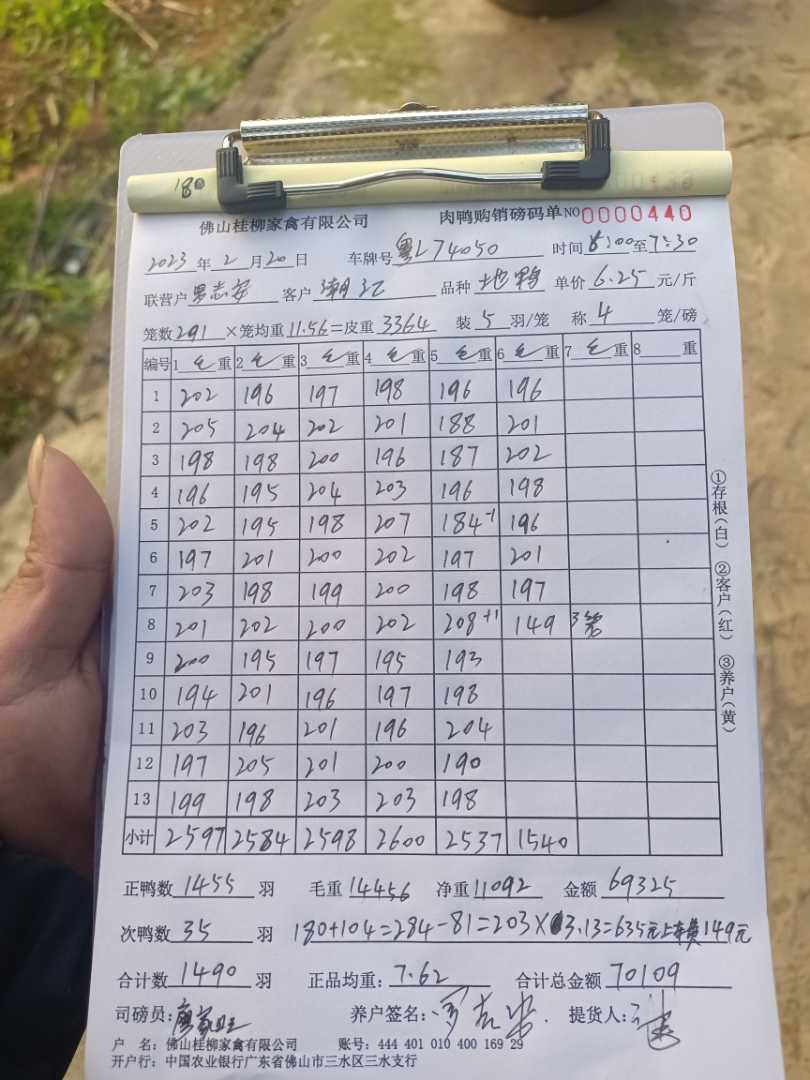 180
佛山桂柳家禽有限公司 肉鸭购销磅码单 NO 0000440
2023年2月20日 车牌号粤L74050 时间 6:00至7:30
联营户 客户潮江 品种地鸭 单价6.25元/斤
笼数291×笼均重11.56=皮重3364 装5羽/笼 称4笼/磅
编号 1毛重 2毛重 3毛重 4毛重 5毛重 6毛重 7毛重 8重
1 202 196 197 198 196 196
2 205 204 202 201 188 201
3 198 198 200 196 187 202
4 196 195 204 203 196 198
5 202 195 198 207 184-1 196
6 197 201 200 202 197 201
7 203 198 199 200 198 197
8 201 202 200 202 208+1 149 3笼
9 200 195 197 195 193
10 194 201 196 197 198
11 203 196 201 196 204
12 197 205 201 200 190
13 199 198 203 203 198
小计 2597 2584 2598 2600 2537 1540
正鸭数1455羽 毛重14456 净重11092 金额69325
次鸭数35羽 180+104=284-81=203×3.13=635元上车费149元
合计数1490羽 正品均重:7.62 合计总金额70109
司磅员: 养户签名: 提货人:
户 名:佛山桂柳家禽有限公司 账号:444 401 010 400 169 29
开户行:中国农业银行广东省佛山市三水区三水支行
①存根(白) ②客户(红) ③养户(黄)